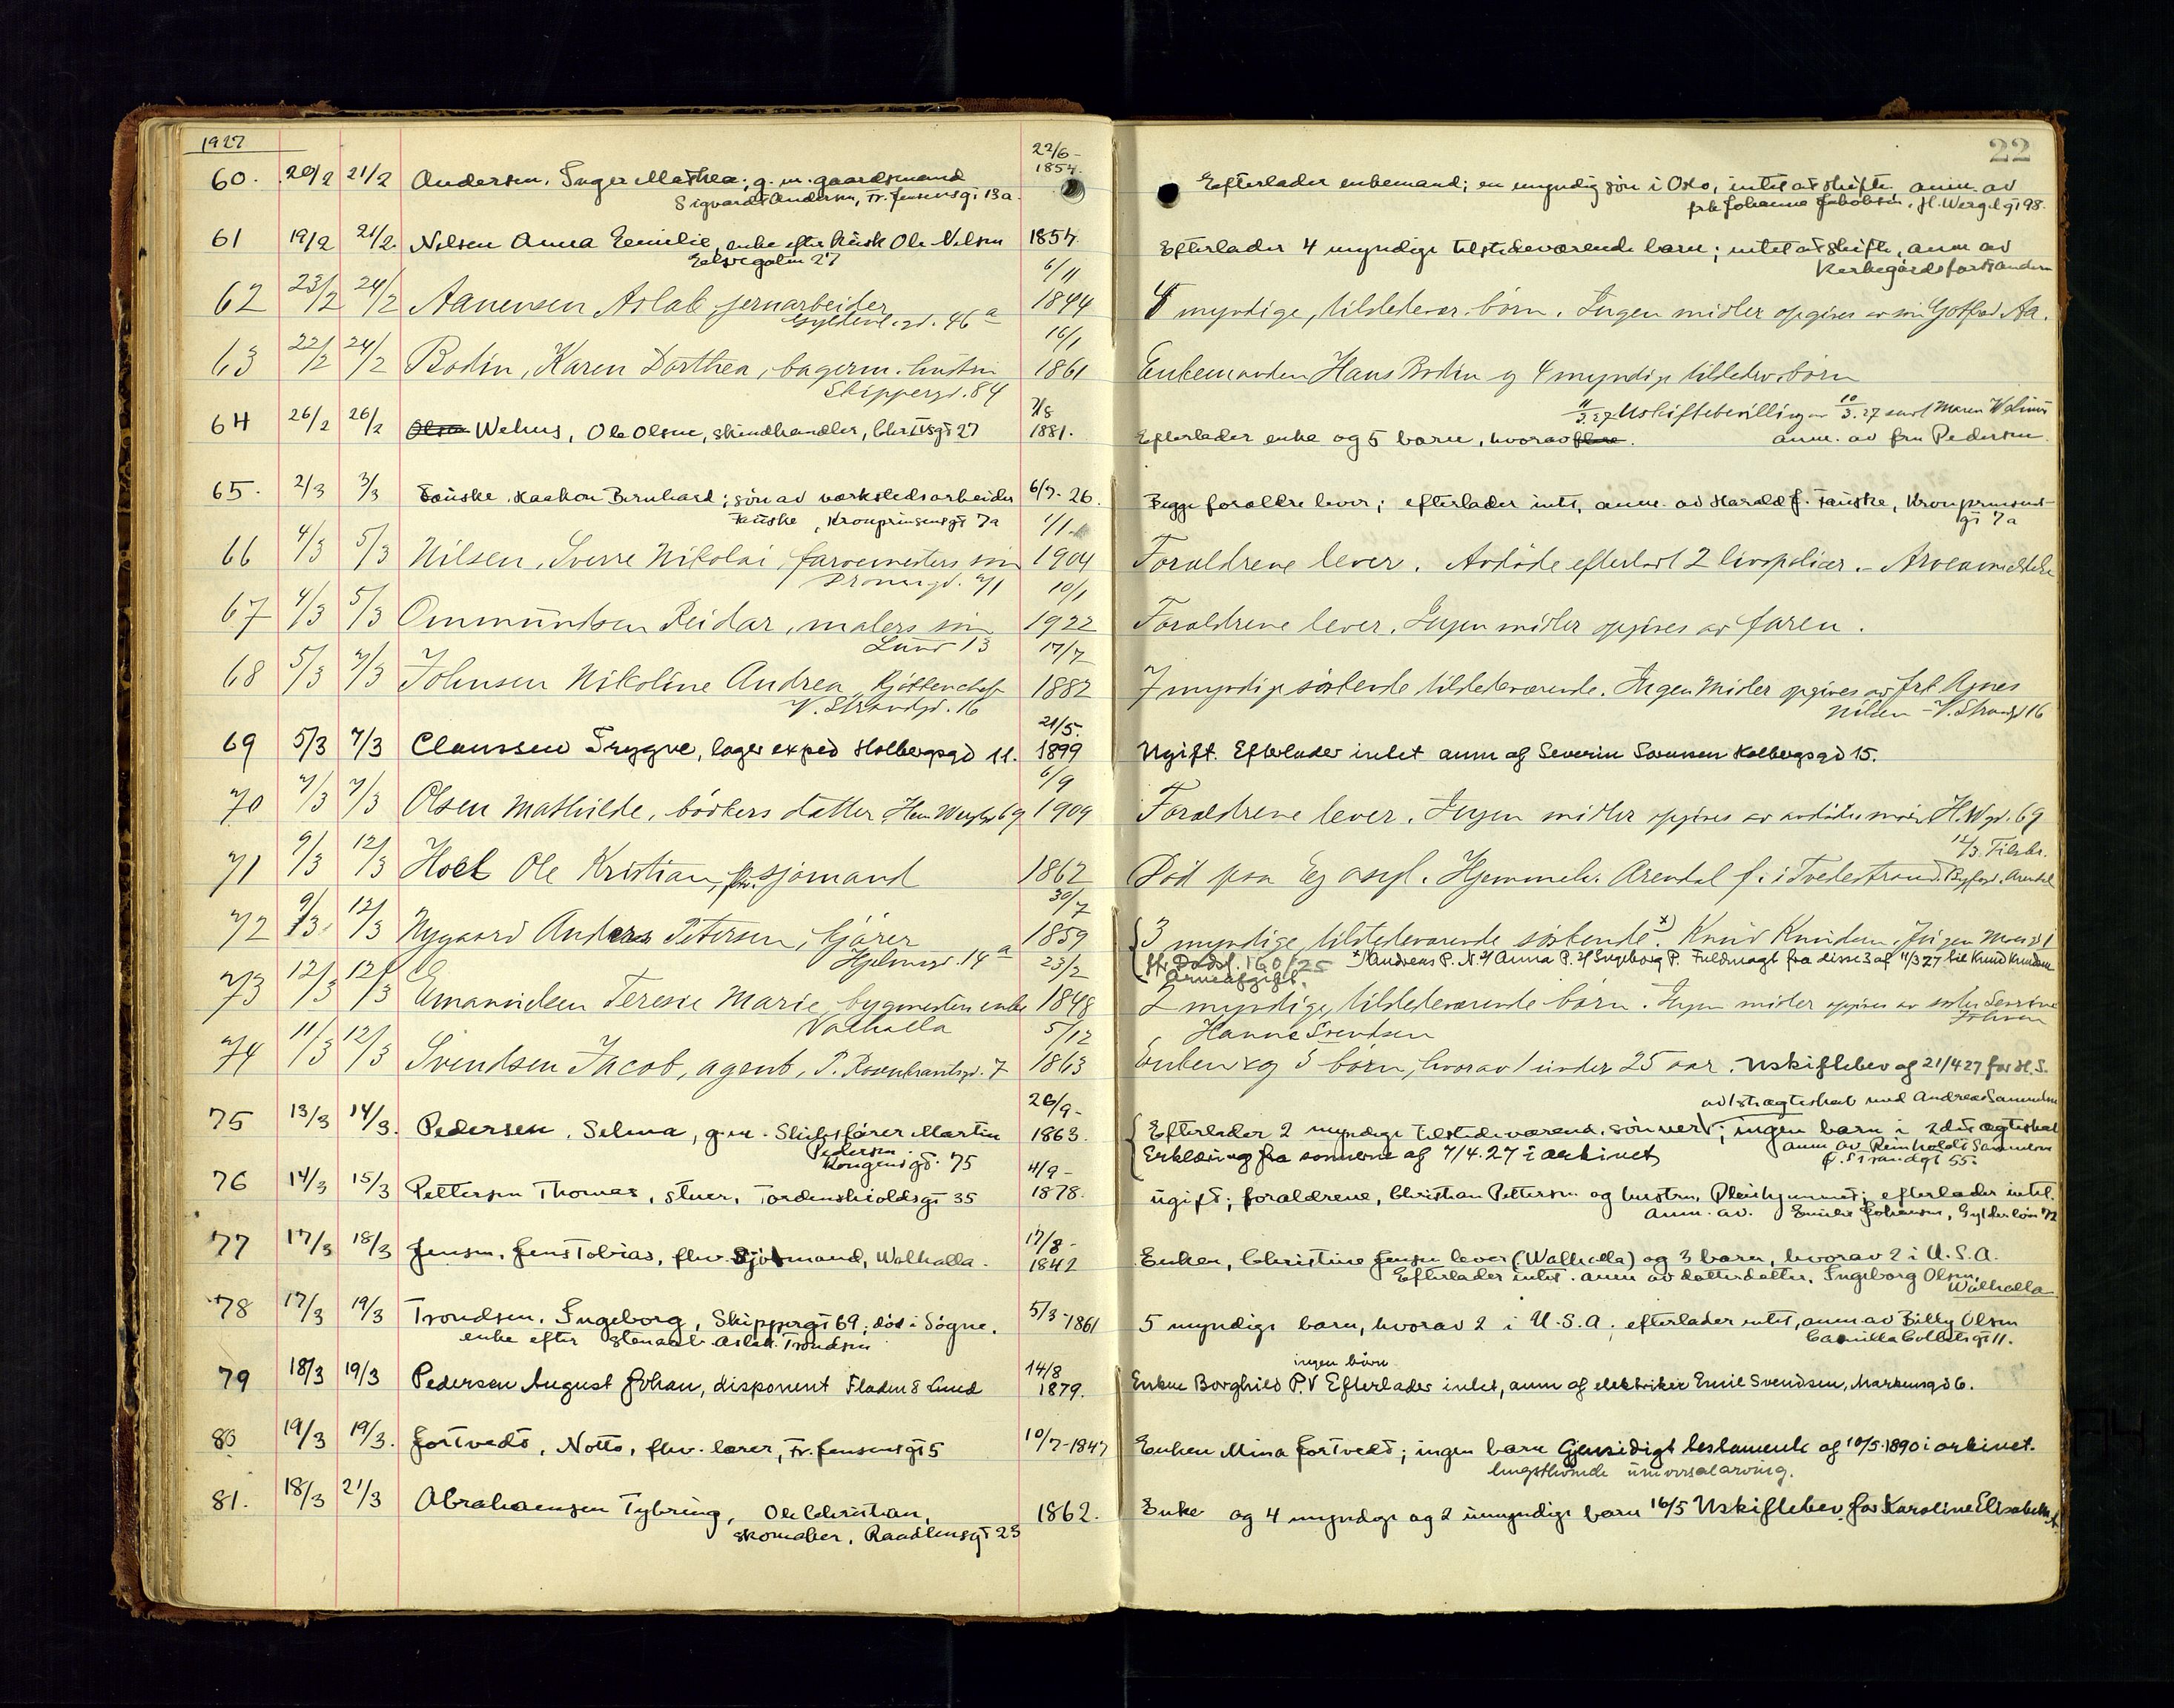 1927
22
60. 20/2 21/2 Andersen, Inger Mathea; g. m. gaardsmand 22/6- 1854. Efterlader enkemand; en myndig søn i Oslo, intet at skifte, anm. av
Sigvardt Andersen, Fr. Jensensgt 13a. frk Johanne Jakobsen, H. Wergel.gt 98.
61 19/2 21/2. Nilsen Anna Emilie, enke efter kusk Ole Nilsen 1854. Efterlader 4 myndige tilstedeværende barn; intet at skifte, anm av
Elvegaten 27 Kirkegårdsforstanderen
62 23/2 24/2 Aanensen Aslak, jernarbeider 6/11 1844 5 myndige, tilstedevær. börn. Ingen midler opgives av sön Gotfred Aa.
Gyldenl. gd. 46a
63 22/2 24/2 Bodin, Karen Dorthea, bagerm. hustru 16/1 1861 Enkemanden Hans Bodin og 4 myndige tilstedev. börn
Skippergd. 84
11/3.27 Uskiftebevilling av 10/3.27 enke Maren Wehus
64 26/2 26/2 Olsen Wehus, Ole Olsen, skindhandler, Chr.IVsgt 27 7/8 1881. Efterlader enke og 5 barn, hvorav flere. anm. av fru Pedersen.
65. 2/3 3/3 Fauske, Haakon Bernhard; søn av verkstedsarbeider 6/7-26. Begge forældre lever; efterlader intet, anm. av Harald J. Fauske, Kronprinsens-
Fauske, Kronprinsensgt 7a gt 7a
66 4/3 5/3 Nilsen, Sverre Nikolai, farvemesters sön 1/1- 1904 Foreldrene lever. Avdöde efterlot 2 livspolicer. - Arveanmeldelse
Dronngd. 71
67 4/3 5/3 Ommundsen Reidar, malers sön 10/1 1922 Foreldrene lever. Ingen midler opgives av faren.
Lund 13
68 5/3 7/3 Johnsen Nikoline Andrea, 17/7 1882 7 myndige söskende tilstedeværende. Ingen midler opgives av frk Agnes
V. Strandgd. 16 Nilsen - V. Strandgd 16
69 5/3 7/3 Claussen Trygve, lagerexped Holbergsgd 11. 21/5. 1899 Ugift. Efterlader intet anm af Severin Sørensen Holbergsgd 15.
70 7/3 7/3 Olsen Mathilde, bödkers datter, Hen. Wergl.gd 69 6/9 1909 Foreldrene lever. Ingen midler opgives av avdödes mor, H.W.gd. 69
12/3. Tilskr.
71 9/3 12/3 Hoel Ole Kristian, fhv. sjömand 1862 Död paa Eg asyl. Hjemmeh. Arendal f. i Tvedestrand. Byfogd. Arendal
72 9/3. 12/3 Nygaard Anders Petersen, kjörer 30/7 1859 3 myndige, tilstedeværende söskende x). Knud Knudsen, Jörgen Moes gd 1
Hjelmsgd. 14a jfr. Dødsf. 160/25 x) Andreas P. N. 2/ Anna P. 3/ Ingeborg P. Fuldmagt fra disse 3 af 11/3 27 til Knud Knudsen
Arveafgift.
73 12/3 12/3 Emanuelsen Teresie Marie, bygmesters enke 23/2 1848 2 myndige, tilstedeværende börn. Ingen midler opgives av
Valhalla Hanne Svendsen
74 11/3 12/3 Svendsen Jacob, agent, P. Rosenkrantzgd. 7 5/12 1863 Enken og 3 börn, hvorav 1 under 25 aar. Uskiftebev af 21/4 27 for H. S.
av 1ste ægteskab med Andreas Samuelsen
75 13/3 14/3. Pedersen, Selma, g.m. Skibsfører Martin 26/9- 1863. Efterlader 2 myndige tilstedeværend. sønner; ingen barn i 2det ægteskab
Pedersen Kongensgt. 75 Erklæring fra sønnerne af 7/4.27 i arkivet anm av Reinholdt Samuelsen
Ø. Strandgt 55.
76 14/3 15/3 Pettersen Thomas, stuer, Tordenskioldsgt 35 4/9- 1878. ugift; forældrene, Christian Pettersen og hustru, Pleiehjemmet; efterlader intet.
anm. av. Emilie Johansen, Gyldenløv 72
77 17/3 18/3 Jensen, Jens Tobias, fhv. Sjømand, Walhalla. 17/8- 1842 Enken, Christine Jensen lever (Walhalla) og 3 barn, hvorav 2 i U.S.A.
Efterlader intet. anm av datterdatter, Ingeborg Olsen, Walhalla
78 17/3 19/3 Trondsen, Ingeborg, Skippergt 69; død i Søgne, 5/3-1861 5 myndige barn, hvorav 2 i U.S.A. efterlader intet, anm av Billy Olsen
enke efter Aslak Trondsen Camilla Colletsgt 11.
ingen børn
79 18/3 19/3 Pedersen August Johan, disponent Fladen 8 Lund 14/8 1879. Enken Borghild P. V Efterlader intet, anm af elektriker Emil Svendsen, Markensgd 6.
80 19/3 19/3. Jortveit, Notto, fhv. lærer, Fr. Jensensgt 5 10/7-1847 Enken Mina Jortveit; ingen barn Gjensidigt testamente af 10/5.1890 i arkivet.
længstlevende universalarving.
81. 18/3 21/3 Abrahamsen Tybring, Ole Christian, 1862. Enke og 4 myndige og 2 umyndige barn 16/5 Uskiftebev. for Karoline Elisabeth A.
skomaker, Raadhusgt 23